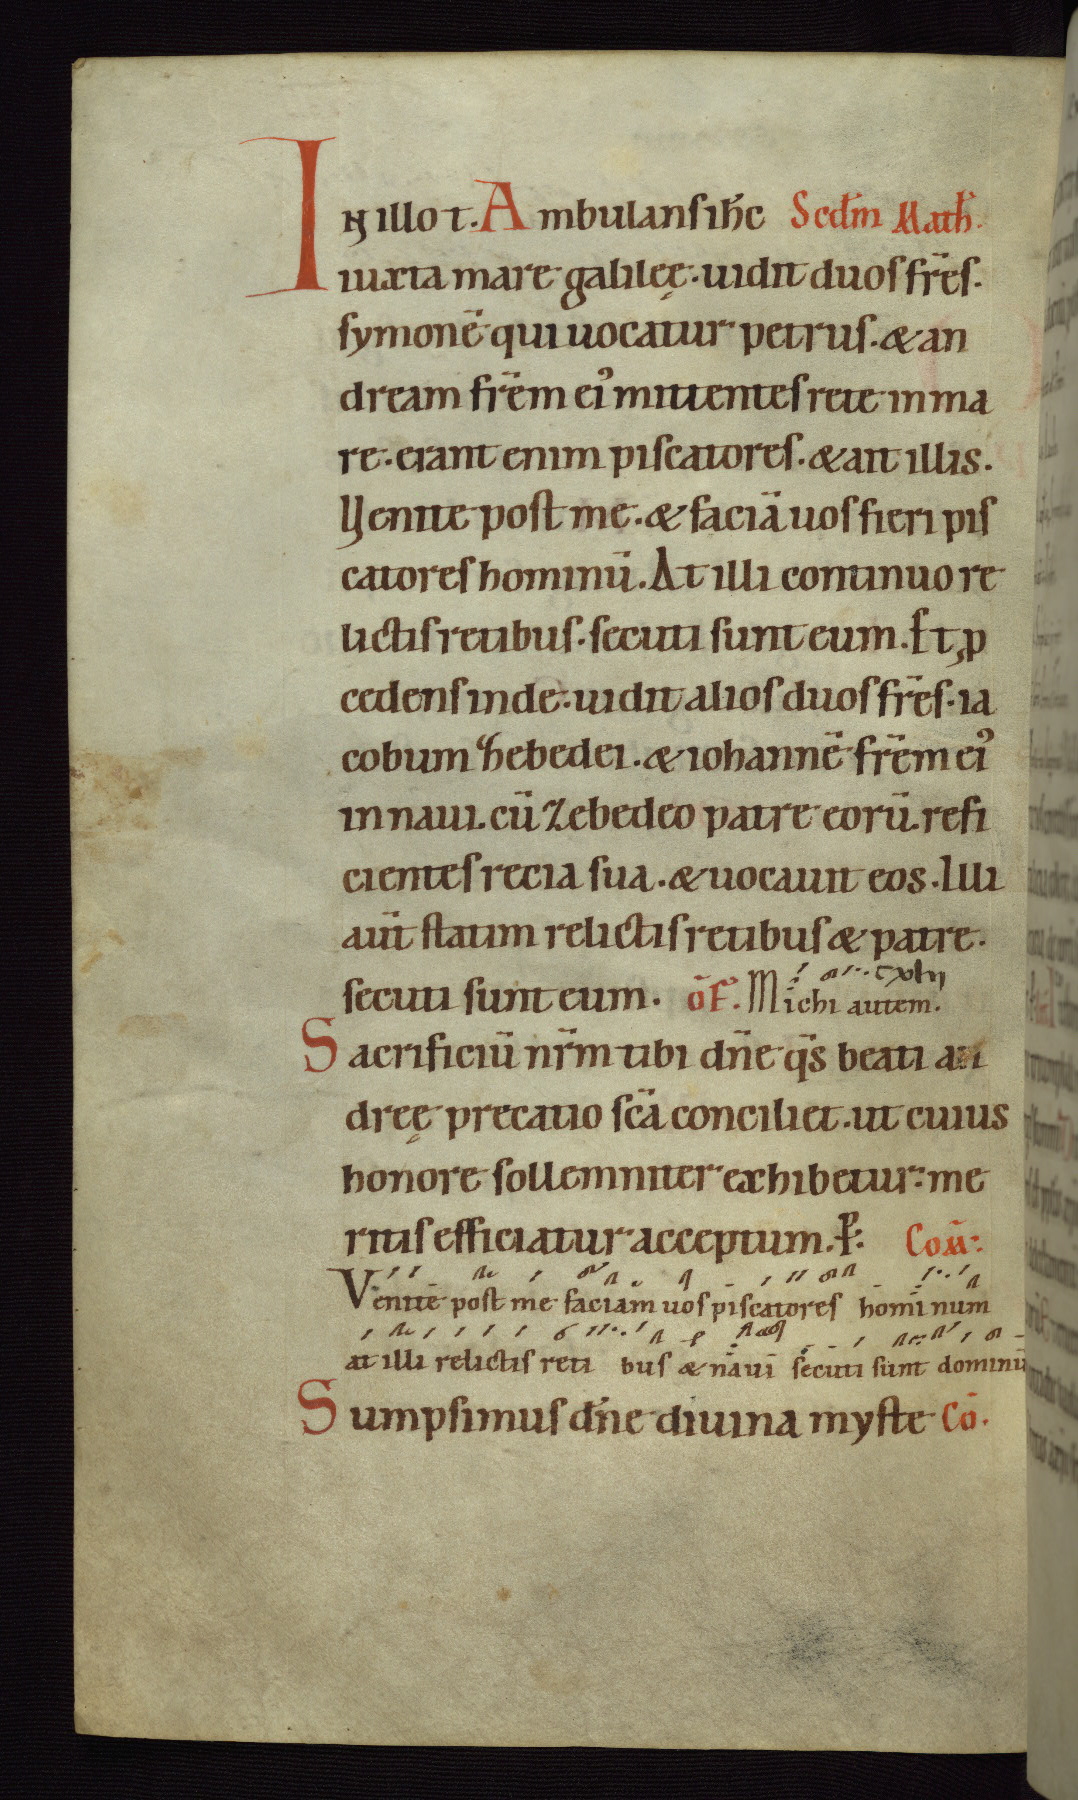 In illo t. Ambulans ih̄c Scd̄m Math̄.
iuxta mare galileę. uidit duos fr̄es.
symonē qui uocatur petrus. & an
dream fr̄em ei᾽ mittentes rete in ma
re. erant enim piscatores. & ait illis.
Venite post me. & faciā uos fieri pis
catores hominū. At illi continuo re
lictis retibus. secuti sunt eum. Et ꝓ
cedens inde. uidit alios duos fr̄es. ia
cobum hebedei. & iohannē fr̄em ei᾽
in naui. cū Zebedeo patre eorū. refi
cientes recia sua. & uocauit eos. Illi
aūt statim relictis retibus & patre.
secuti sunt eum. of̄. Michi autem. cxlij
Sacrificiū nr̄m tibi dn̄e q̄s beati an
dreę precatio sc̄a conciliet. ut cuius
honore sollemniter exhibetur: me
ritis efficiatur acceptum. P: Com̄:
Venite post me faciam uos piscatores hominum
at illi relictis reti bus & naui secuti sunt dominū
Sumpsimus dn̄e diuina myste Cō.